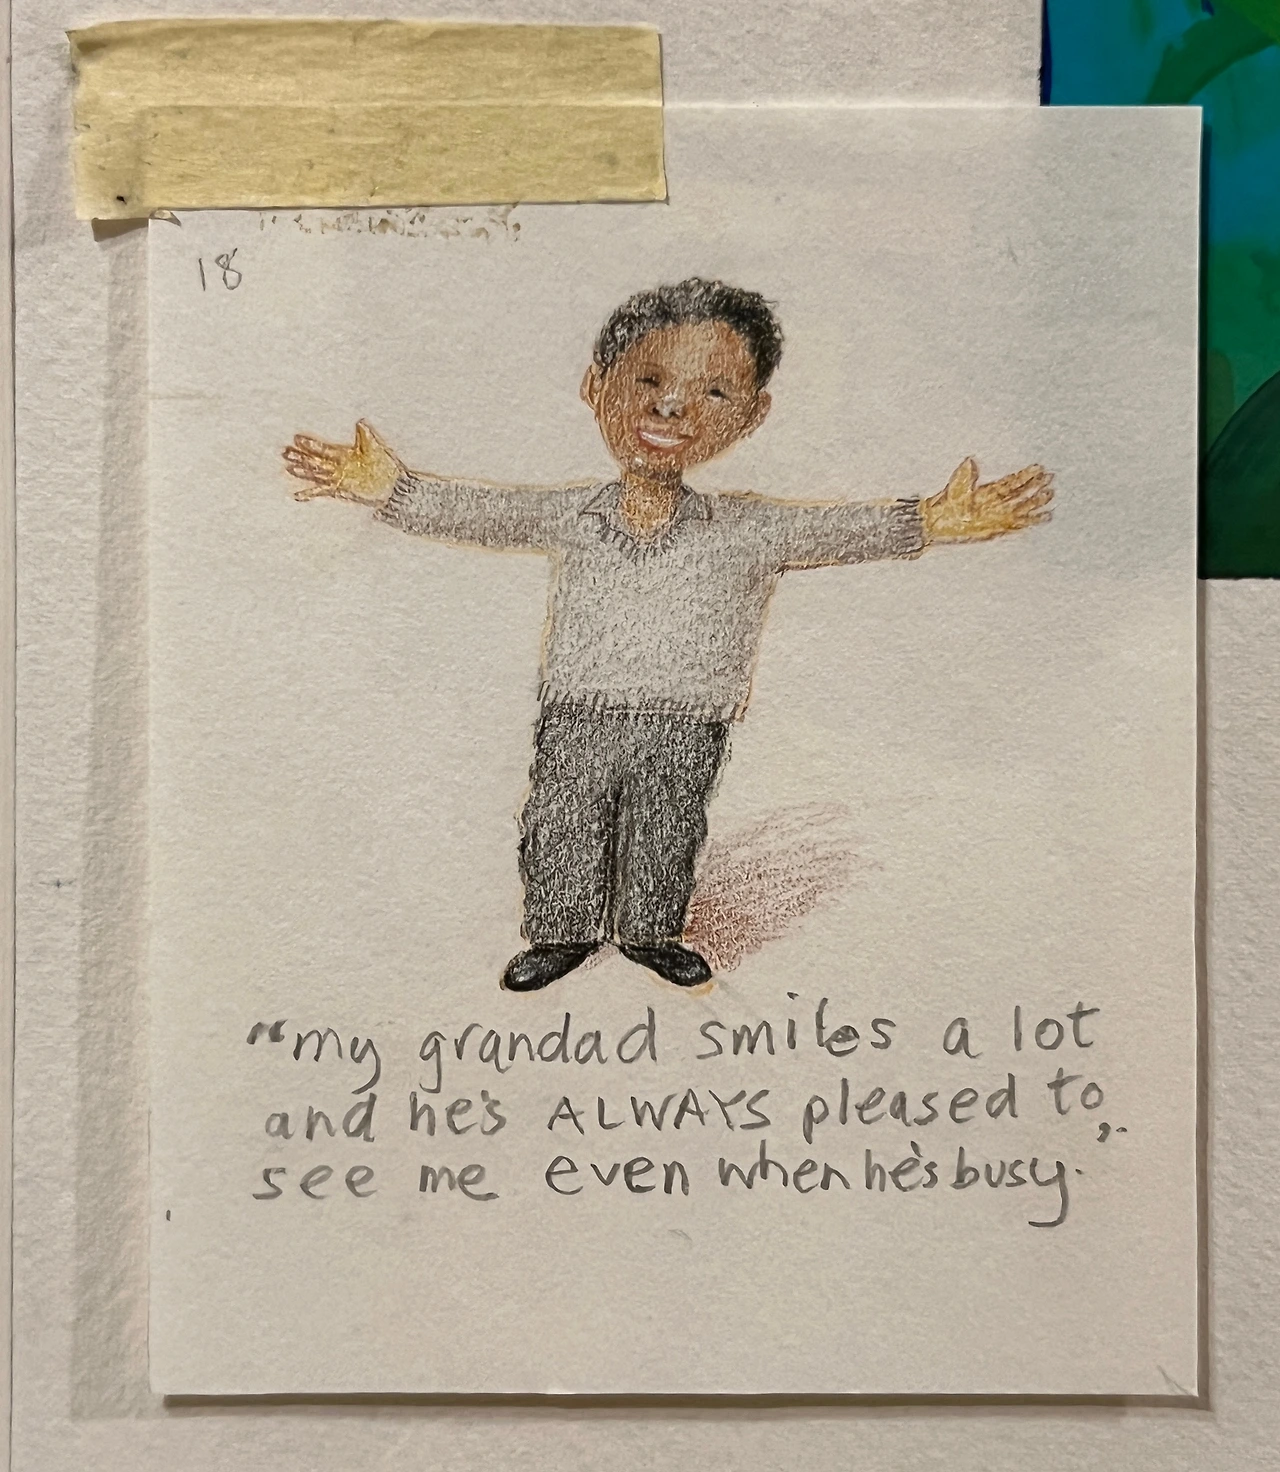 18
"my grandad smiles a lot
and he's ALWAYS pleased to
see me even when he's busy."